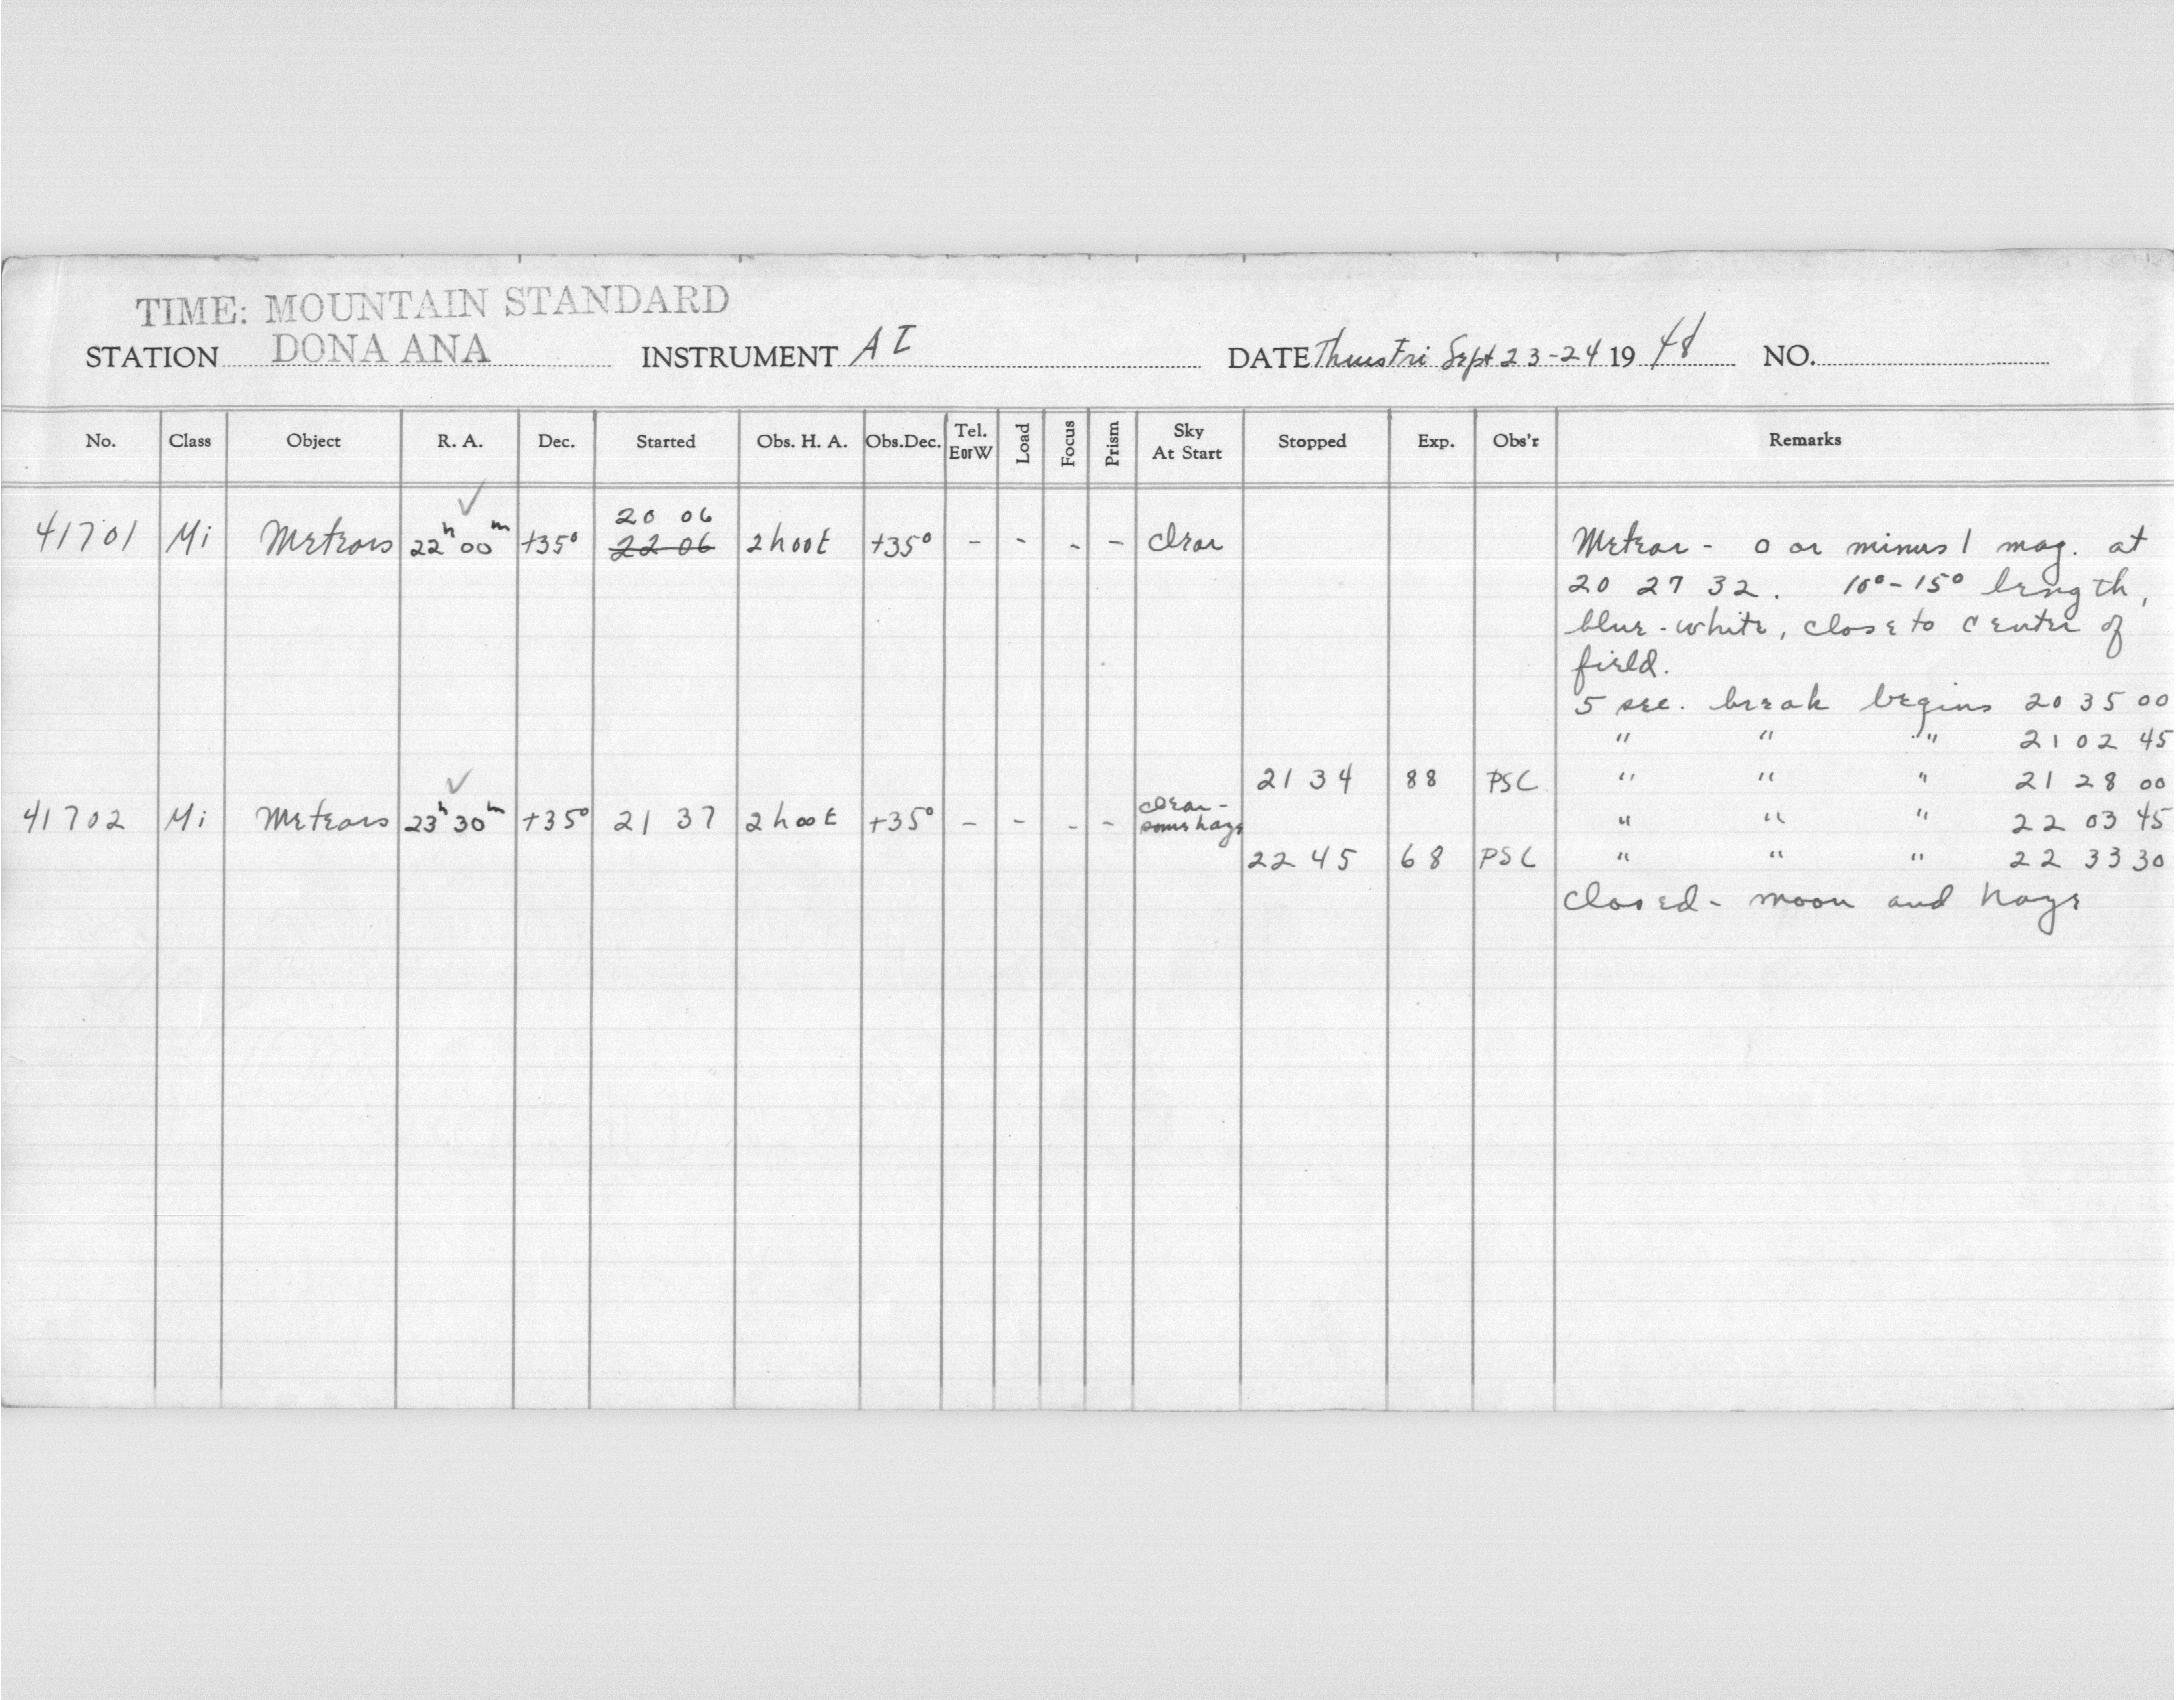 TIME: MOUNTAIN STANDARD
STATION DONA ANA INSTRUMENT AI DATE Thurs Fri Sept 23-24 19 48 NO.
No. Class Object R. A. Dec. Started Obs. H. A. Obs.Dec. Tel. EorW Load Focus Prism Sky At Start Stopped Exp. Obs'r Remarks
20 06
41701 Mi Meteors 22h 00m +35° 22 06 2h00t +35° - - - - clear Meteor - 0 or minus 1 mag. at
20 27 32. 10°-15° length,
blue-white, close to center of
field.
5 sec. break begins 20 35 00
" " " 21 02 45
21 34 88 PSC " " " 21 28 00
41702 Mi Meteors 23h 30m +35° 21 37 2h00t +35° - - - - clear - some haze " " " 22 03 45
22 45 68 PSC " " " 22 33 30
closed - moon and haze